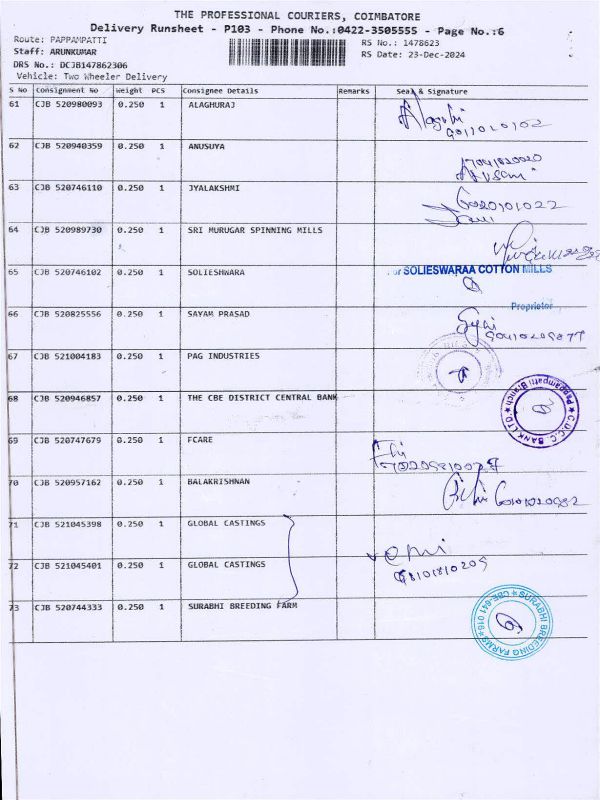 THE PROFESSIONAL COURIERS, COIMBATORE
Delivery Runsheet - P103 - Phone No.:0422-3505555 - Page No.:6
Route: PAPPAMPATTI
RS No.: 1478623
Staff: ARUNKUMAR
RS Date: 23-Dec-2024
DRS No.: DCJB147862306
Vehicle: Two Wheeler Delivery
S No Consignment No Weight PCS Consignee Details Remarks Seal & Signature
61 CJB 520980093 0.250 1 ALAGHURAJ
62 CJB 520940359 0.250 1 ANUSUYA
63 CJB 520746110 0.250 1 JYALAKSHMI
64 CJB 520989730 0.250 1 SRI MURUGAR SPINNING MILLS
65 CJB 520746102 0.250 1 SOLIESHWARA
SOLIESWARAA COTTON MILLS
Proprietor
66 CJB 520825556 0.250 1 SAYAM PRASAD
67 CJB 521004183 0.250 1 PAG INDUSTRIES
68 CJB 520946857 0.250 1 THE CBE DISTRICT CENTRAL BANK
C.D.C.C. BANK LTD. ★ Pappampatti Branch ★
69 CJB 520747679 0.250 1 FCARE
70 CJB 520957162 0.250 1 BALAKRISHNAN
71 CJB 521045398 0.250 1 GLOBAL CASTINGS
72 CJB 521045401 0.250 1 GLOBAL CASTINGS
73 CJB 520744333 0.250 1 SURABHI BREEDING FARM
SURABHI BREEDING FARMS ★ CBE-641 016 ★